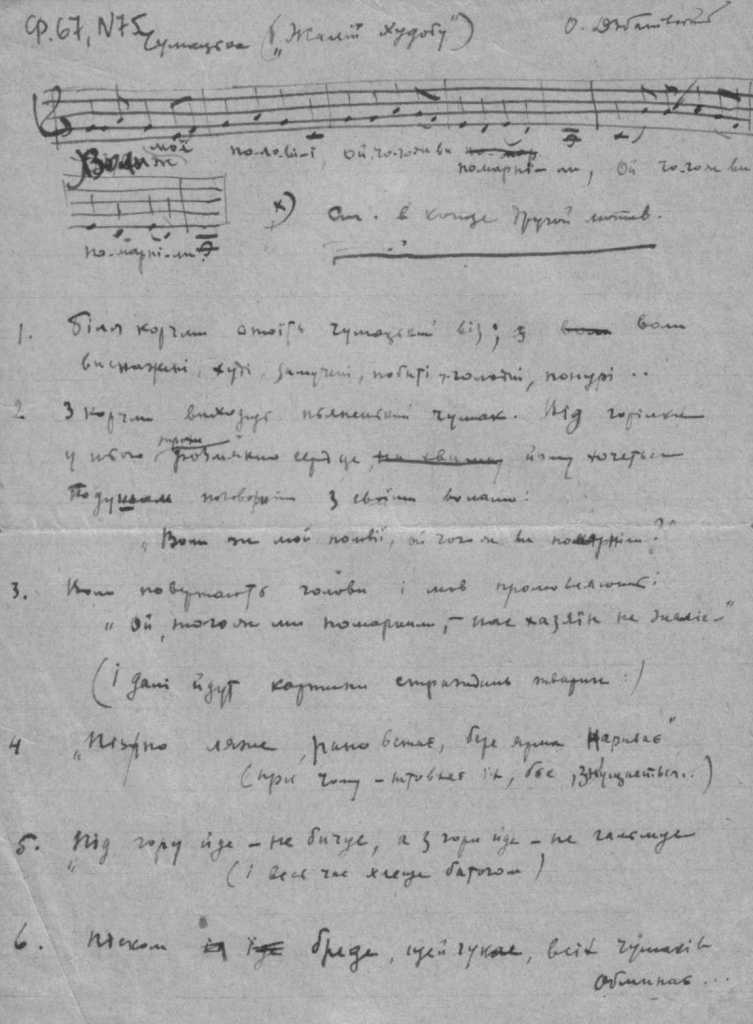 Ф. 67, N 75
Чумацька („Жалій худобу") О. Дзбанівський
Воли ж мої половії, ой чого ж ви помарніли, ой чого ж ви
помарніли
х) См. в конце другой мотив.
1. Біля корчми стоїть чумацький віз; з воли
виснажені, худі, замучені, побиті, голодні, понурі..
2 З корчми виходить п'яненький чумак. Від горілки
у нього трохи розм'якло сердце, йому хочеться
поговорити з своїми волами:
„Воли ж мої половії, ой чого ж ви помарніли?"
3. Воли повертають голови і мов промовляють:
„Ой, того ж ми помарнили, – нас хазяїн не жаліє –"
(і далі йдут картини страждань тварин:)
4 „Пізно ляже, рано встає, бере ярма нариває"
(при чому – штовхає їх, б'є, знущається..)
5. „Під гору йде – не бичує, а з гори йде – не гальмує
(і весь час хлеще батогом)
6. Піском бреде, цей гукає, всіх чумаків
обминає...